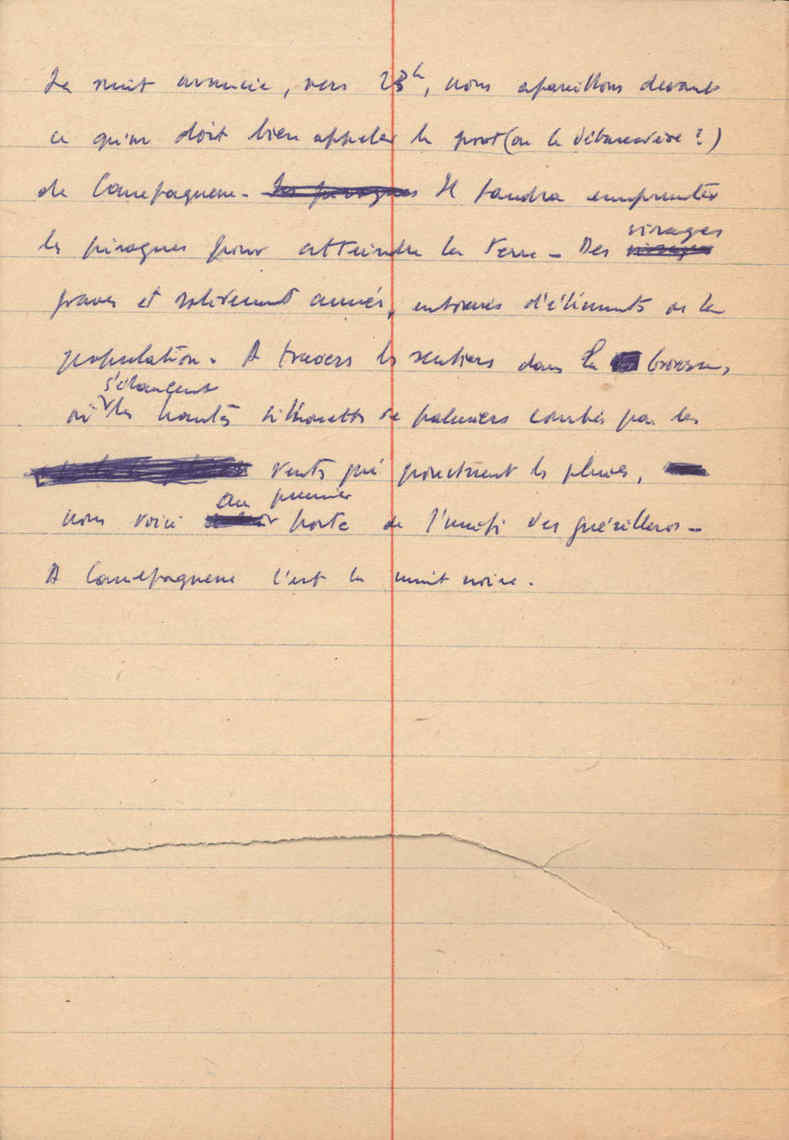 La nuit avancée, vers 23h, nous apareillons devant
ce qu'on doit bien appeler le port (ou le débarcadère ?)
de Campaguene. Les pirogues Il faudra emprunter
les pirogues pour atteindre la terre. Des visages
graves et solidement armés, entourés d'éléments de la
population. A travers les sentiers dans la brousse,
où s'élancent les hautes silhouettes de palmiers courbés par les
vents qui ponctuent les pluies,
nous voici au premier poste de l'unité des guérilleros.
A Campaguene c'est la nuit noire.